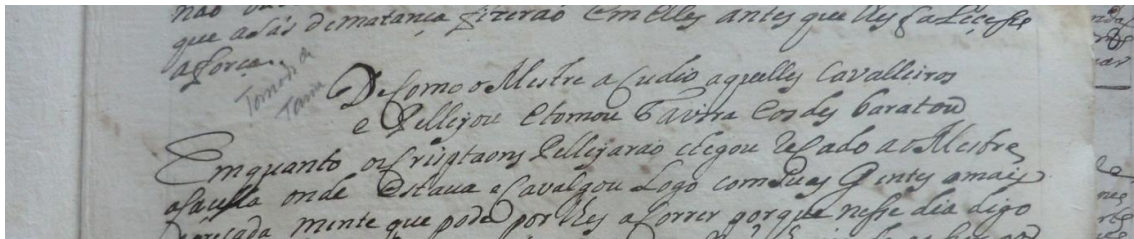 que asás de matança fizerão em elles antes que lhes faleçesse
a força.
Tomada de
Tavira
De Como o Mestre acudio aquelles Cavalleiros
e Pellejou e tomou Tavira e os des baratou
Emquanto os Cristaons Pellejarão chegou recado ao Mestre
a onde estava e Cavalgou Logo com suas Gentes a mais
mente que pode por lhes acorrer porque nesse dia digo